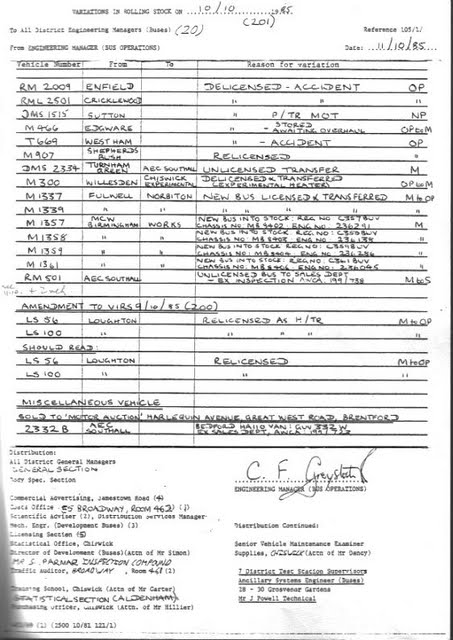 VARIATIONS IN ROLLING STOCK ON 10/10 1985
(201)
To All District Engineering Managers (Buses) (20)
Reference 105/1/
From ENGINEERING MANAGER (BUS OPERATIONS)
Date: 11/10/85
Vehicle Number From To Reason for variation
RM 2009 ENFIELD DELICENSED - ACCIDENT OP
RML 2501 CRICKLEWOOD " " "
DMS 1515 SUTTON " P/TR MOT NP
M 466 EDGWARE " - STORED AWAITING OVERHAUL OP to M
T 669 WEST HAM " - ACCIDENT OP
M 907 SHEPHERDS BUSH RELICENSED "
DMS 2334 TURNHAM GREEN AEC SOUTHALL UNLICENSED TRANSFER M
M 300 WILLESDEN CHISWICK EXPERIMENTAL DELICENSED & TRANSFERRED (EXPERIMENTAL HEATER) OP to M
M 1337 FULWELL NORBITON NEW BUS LICENSED & TRANSFERRED M to OP
M 1339 " " " " " " "
M 1357 MCW BIRMINGHAM WORKS NEW BUS INTO STOCK: REG NO C357BUV
CHASSIS NO: MB 8402 ENG NO: 236291 M
M 1358 " " NEW BUS INTO STOCK: REG NO: C358BUV
CHASSIS NO: MB 8403 ENG NO: "
M 1359 " " NEW BUS INTO STOCK REG NO: C359BUV
CHASSIS NO: MB 8404 ENG NO: "
M 1361 " " NEW BUS INTO STOCK: REG NO: C361BUV
CHASSIS NO: MB 8406 ENG NO: 236045 "
RM 501 AEC SOUTHALL UNLICENSED BUS TO SALES DEPT
- EX INSPECTION 199/738 M to S
AMENDMENT TO VIRS 9/10/85 (200)
LS 56 LOUGHTON RELICENSED AS H/TR M to OP
LS 100 " " "
SHOULD READ:
LS 56 LOUGHTON RELICENSED M to OP
LS 100 " " "
MISCELLANEOUS VEHICLE
SOLD TO 'MOTOR AUCTION' HARLEQUIN AVENUE, GREAT WEST ROAD, BRENTFORD
2332 B AEC SOUTHALL BEDFORD HA110 VAN: GUV 332W
EX SALES DEPT, AWCA: 199/723
Distribution:
All District General Managers
GENERAL SECTION
Body Spec. Section
C. F. Greystock
ENGINEERING MANAGER (BUS OPERATIONS)
Commercial Advertising, Jamestown Road (4)
Costs Office - 55 BROADWAY, ROOM 462) (1)
Scientific Adviser (2), Distribution Services Manager
Mech. Engr. (Development Buses) (3)
Licensing Section (5)
Statistical Office, Chiswick
Director of Development (Buses)(Attn of Mr Simon)
MR S. PARMAR INSPECTION COMPOUND
Traffic Auditor, BROADWAY, Room 461 (1)
Training School, Chiswick (Attn of Mr Carter)
STATISTICAL SECTION (ALDENHAM)
Purchasing Officer, Chiswick (Attn. of Mr Hillier)
(1) (2500 10/81 121/1)
Distribution Continued:
Senior Vehicle Maintenance Examiner
Supplies, CHISWICK (Attn of Mr Dency)
7 District Test Station Supervisors
Ancillary Systems Engineer (Buses)
18 - 30 Grosvenor Gardens
Mr J Powell Technical